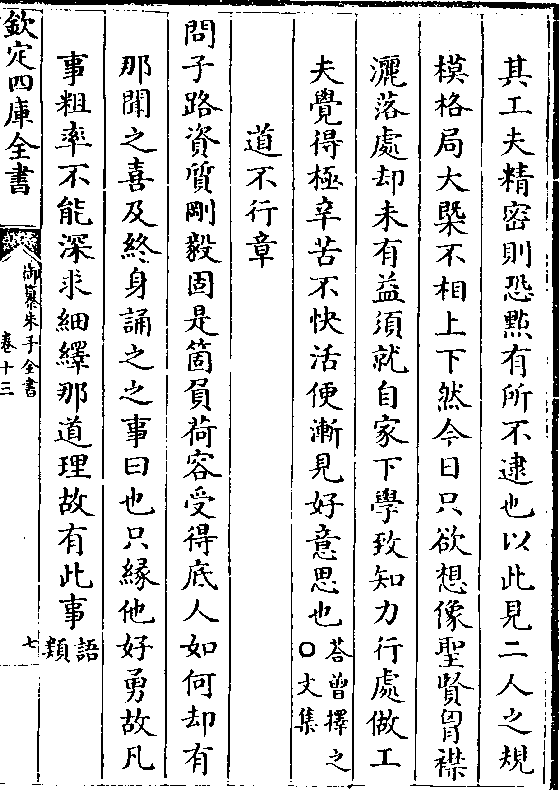 其工夫精密則恐㸃有所不逮也以此見二人之規
模格局大槩不相上下然今日只欲想像聖賢胷襟
灑落處却未有益須就自家下學致知力行處做工
夫覺得極辛苦不快活便漸見好意思也答曾擇之○文集
道不行章
問子路資質剛毅固是箇負荷容受得底人如何却有
那聞之喜及終身誦之之事曰也只縁他好勇故凡
事粗率不能深求細繹那道理故有此事語類
欽定四庫全書
御纂朱子全書
卷十三
七